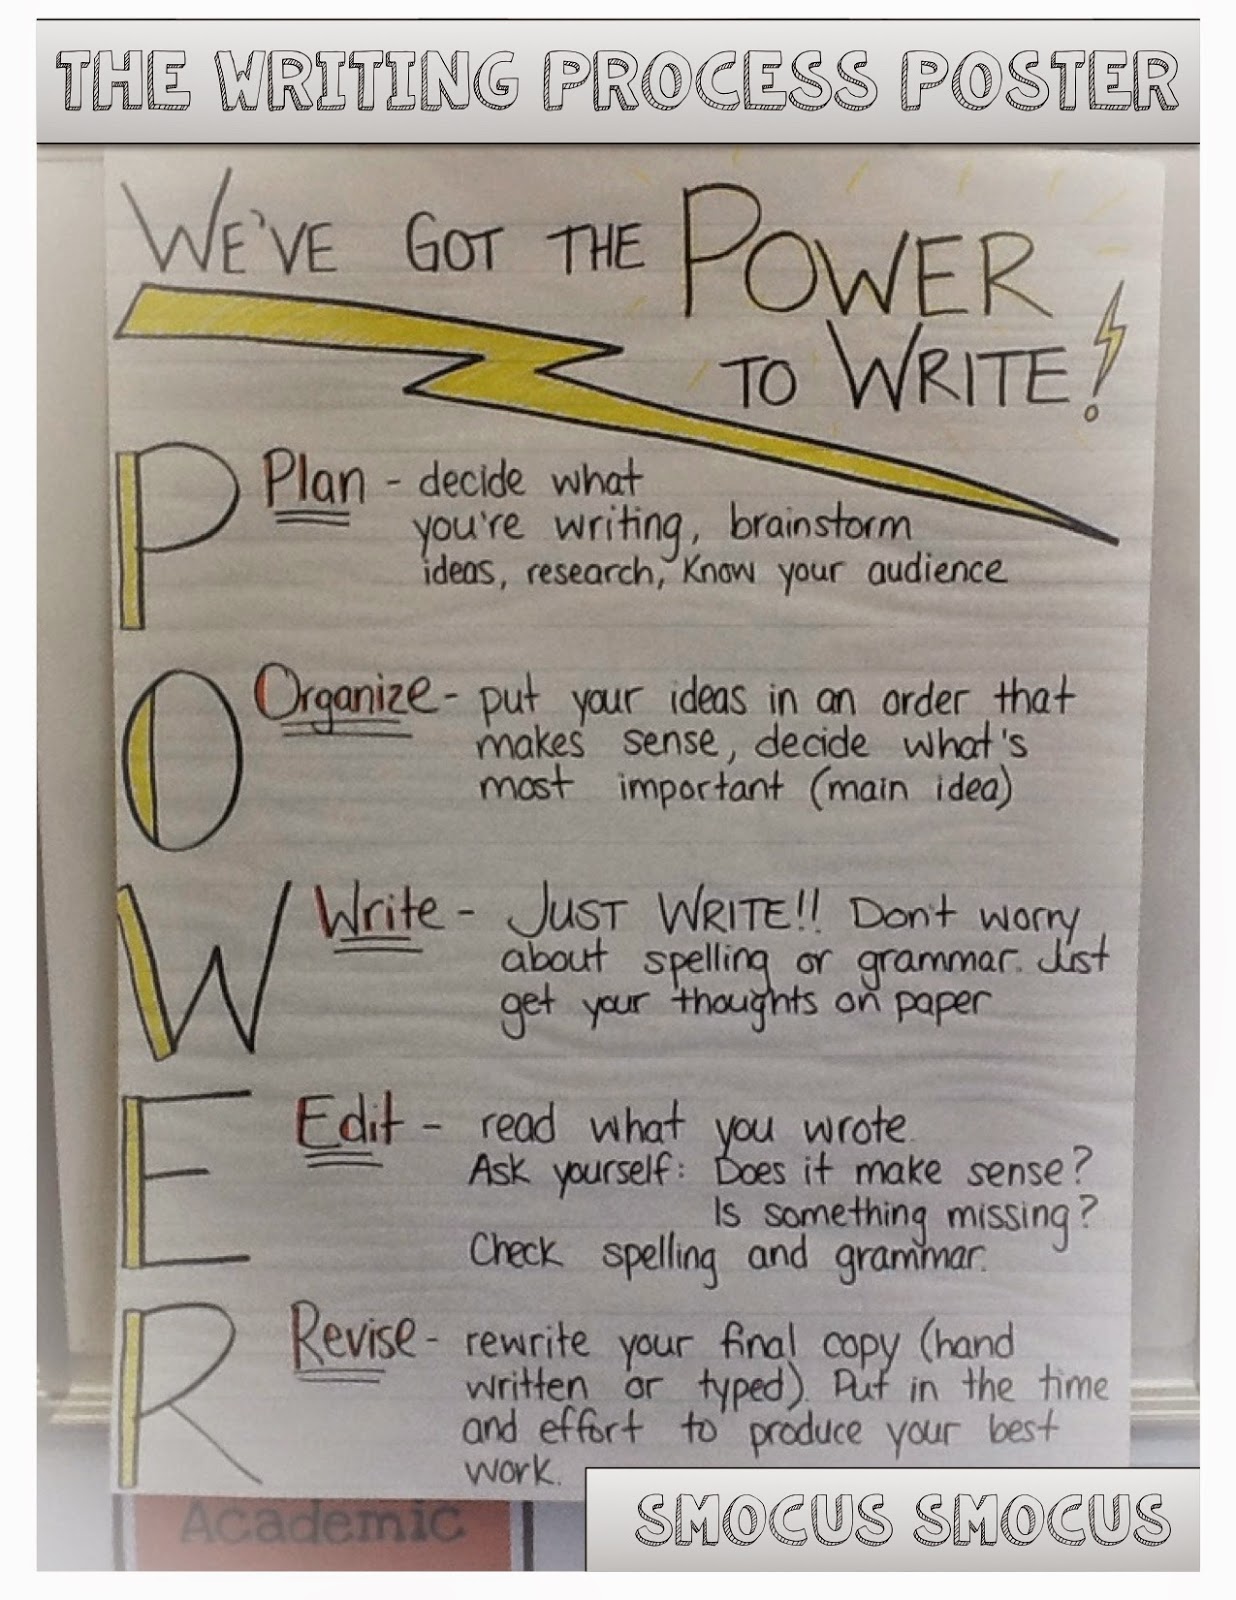 THE WRITING PROCESS POSTER
WE'VE GOT THE POWER
TO WRITE!
P Plan - decide what
you're writing, brainstorm
ideas, research, know your audience
O Organize - put your ideas in an order that
makes sense, decide what's
most important (main idea)
W Write - JUST WRITE!! Don't worry
about spelling or grammar. Just
get your thoughts on paper
E Edit - read what you wrote.
Ask yourself: Does it make sense?
Is something missing?
Check spelling and grammar.
R Revise - rewrite your final copy (hand
written or typed). Put in the time
and effort to produce your best
work.
Academic
SMOCUS SMOCUS